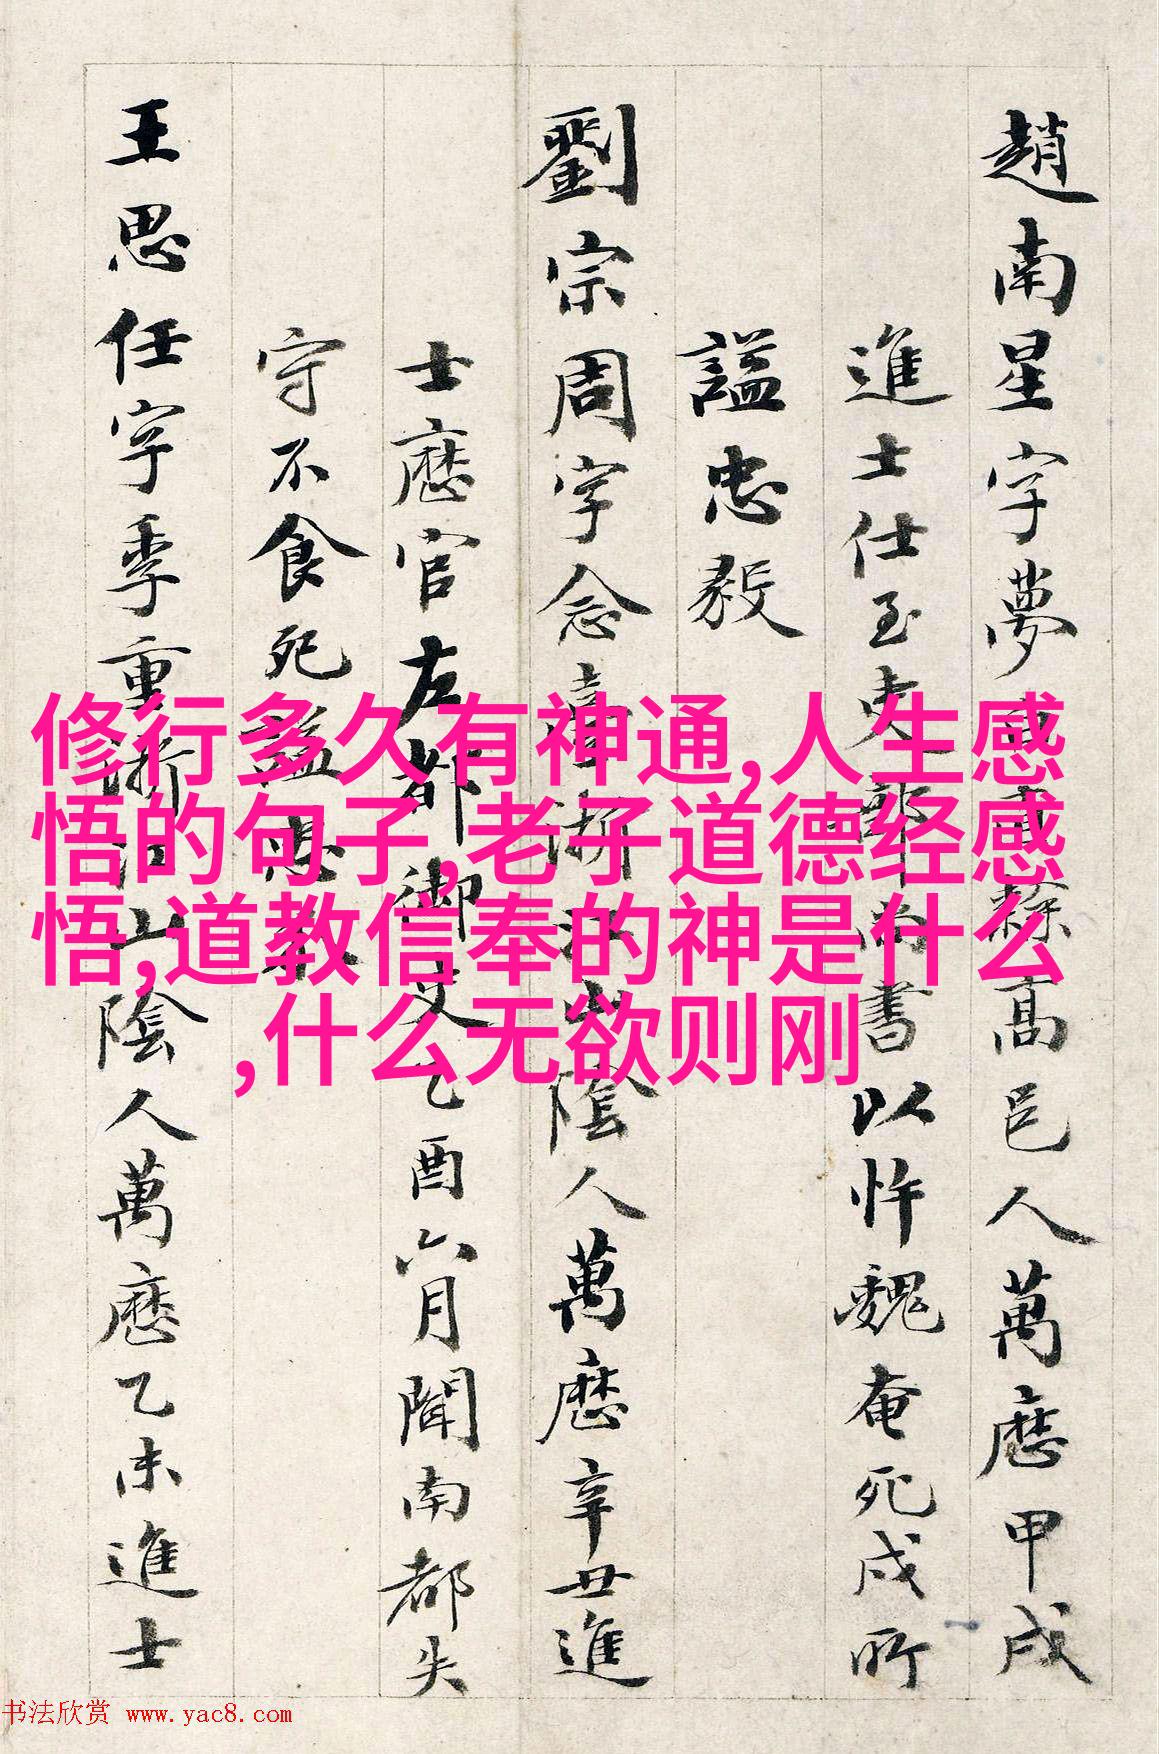 趙南星字夢白號儕鶴高邑人萬曆甲戌
進士仕至吏部尚書以忤魏奄死戍所
謚忠毅
劉宗周字念臺浙江山陰人萬曆辛丑進
士歷官左都御史乙酉六月聞南都失
守不食死謚忠
王思任字季重浙江山陰人萬曆乙未進士
修行多久有神通,人生感
悟的句子,老子道德经感
悟,道教信奉的神是什么
,什么无欲则刚
书法欣赏 www.yac8.com